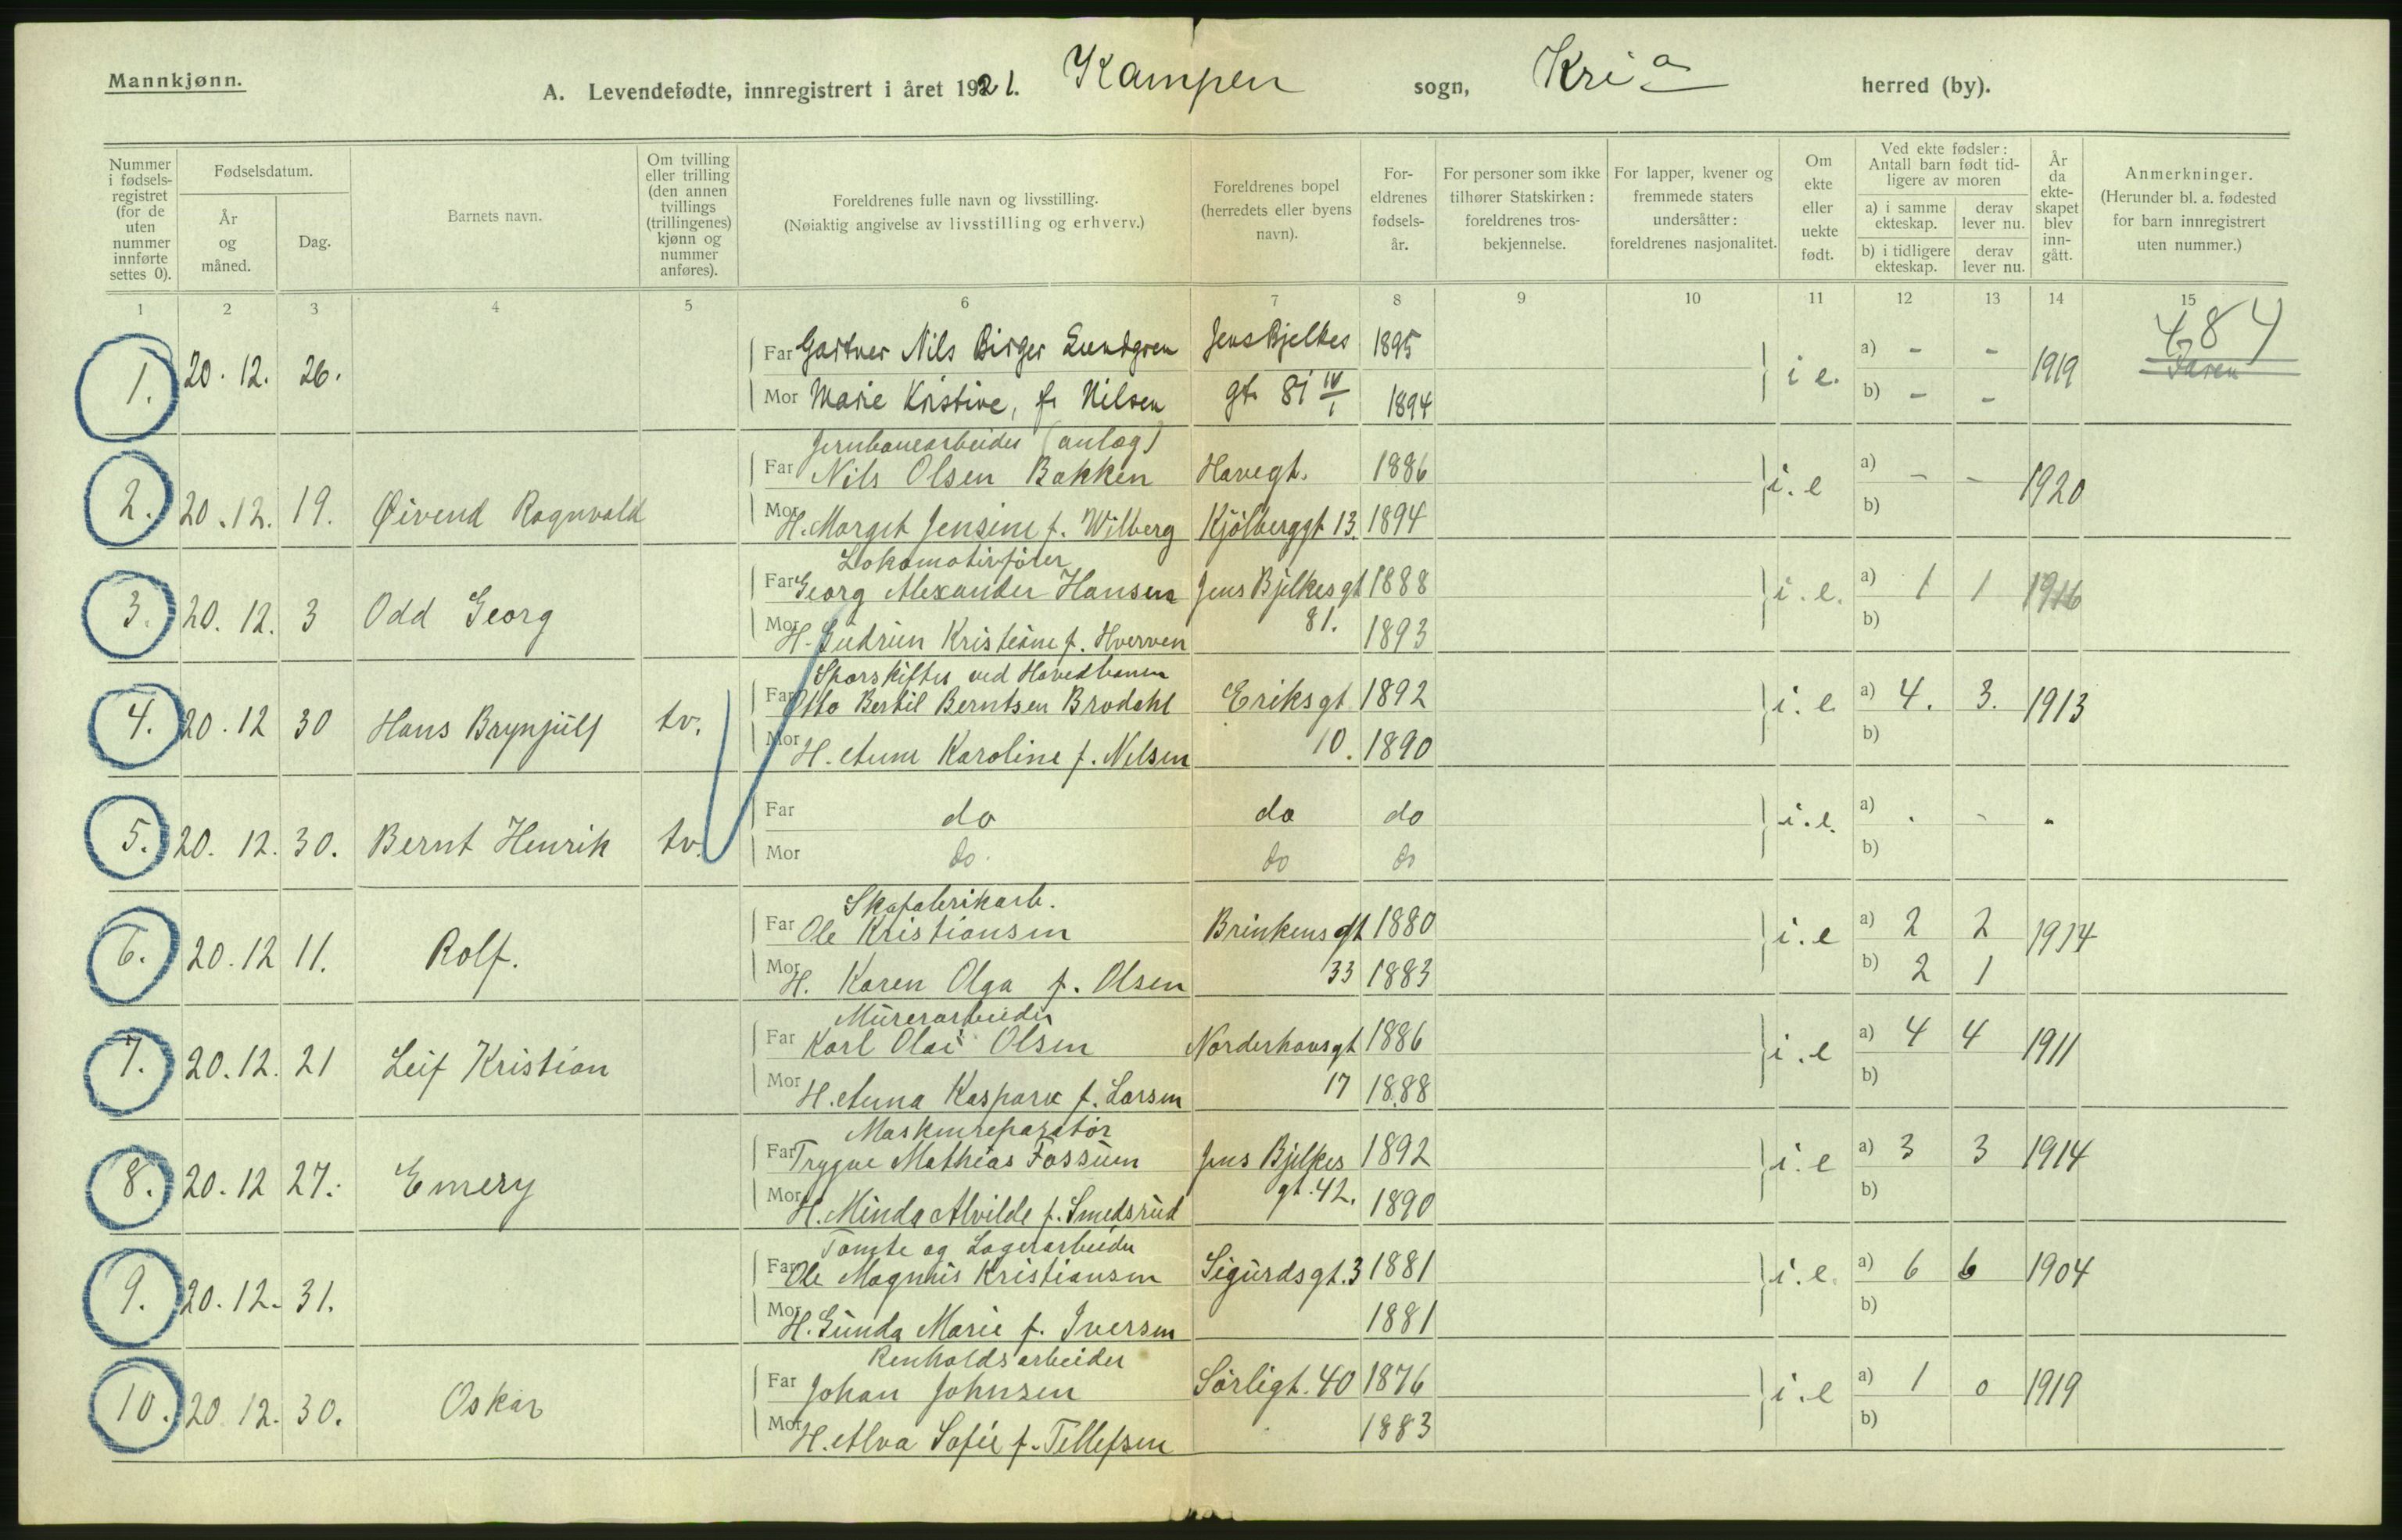 Mannkjønn.
A. Levendefødte, innregistrert i året 1921. Kampen sogn, Kria herred (by).
Nummer i fødselsregistret (for de uten nummer innførte settes 0).
Fødselsdatum.
År og måned.
Dag.
Barnets navn.
Om tvilling eller trilling (den annen tvillings (trillingenes) kjønn og nummer anføres).
Foreldrenes fulle navn og livsstilling. (Nøiaktig angivelse av livsstilling og erhverv.)
Foreldrenes bopel (herredets eller byens navn).
Foreldrenes fødselsår.
For personer som ikke tilhører Statskirken: foreldrenes trosbekjennelse.
For lapper, kvener og fremmede staters undersåtter: foreldrenes nasjonalitet.
Om ekte eller uekte født.
Ved ekte fødsler: Antall barn født tidligere av moren
a) i samme ekteskap. derav lever nu.
b) i tidligere ekteskap. derav lever nu.
År da ekteskapet blev inngått.
Anmerkninger. (Herunder bl. a. fødested for barn innregistrert uten nummer.)
1 2 3 4 5 6 7 8 9 10 11 12 13 14 15
484
1. 20. 12. 26. Far Gartner Nils Birger Lundgren Jens Bjelkes 1895 i e. a) - - 1919
Mor Marie Kristine, f. Nilsen gt. 81 IV/1 1894 b) - -
Jernbanearbeider (anlæg)
2. 20.12. 19. Øivend Ragnvald Far Nils Olsen Bakken Havegt. 1886 i.e a) - - 1920
Mor H. Margit Jensine f. Wilberg Kjølberggt 13. 1894 b)
Lokomotivfører
3. 20. 12. 3 Odd Georg Far Georg Alexander Hansen Jens Bjelkesgt 1888 i.e. a) 1 1 1916
Mor H. Gudrun Kristiane f. Hverven 81. 1893 b)
Sporskifter ved Hovedbanen
4. 20.12 30 Hans Brynjulf tv. Far Otto Bertil Berntsen Brodahl Eriksgt 1892 i.e a) 4. 3. 1913
Mor H. Anne Karoline f. Nilsen 10. 1890 b)
5. 20. 12. 30. Bernt Henrik tv. Far do do do i.e. a) . - -
Mor do. do do b)
Skofabrikarb.
6. 20.12 11. Rolf. Far Ole Kristiansen Brinkens gt 1880 i.e a) 2 2 1914
Mor H. Karen Olga f. Olsen 33 1883 b) 2 1
Murerarbeider
7. 20.12. 21 Leif Kristian Far Karl Olai Olsen Norderhovsgt 1886 i.e a) 4 4 1911
Mor H. Anna Kaspara f. Larsen 17 1888 b)
Maskinreparatør
8. 20.12 27. Emery Far Trygve Mathias Fossum Jens Bjelkes 1892 i.e a) 3 3 1914
Mor H. Minda Alvilde f. Smedsrud gt.42. 1890 b)
Tomte og Lagerarbeider
9. 20.12. 31. Far Ole Magnus Kristiansen Sigurdsgt.3 1881 i.e. a) 6 6 1904
Mor H. Gunda Marie f. Iversen 1881 b)
Renholdsarbeider
10. 20 12. 30. Oskar Far Johan Johnsen Sørligt. 40 1876 i.e a) 1 0 1919
Mor H. Alva Sofie f. Tellefsen 1883 b)